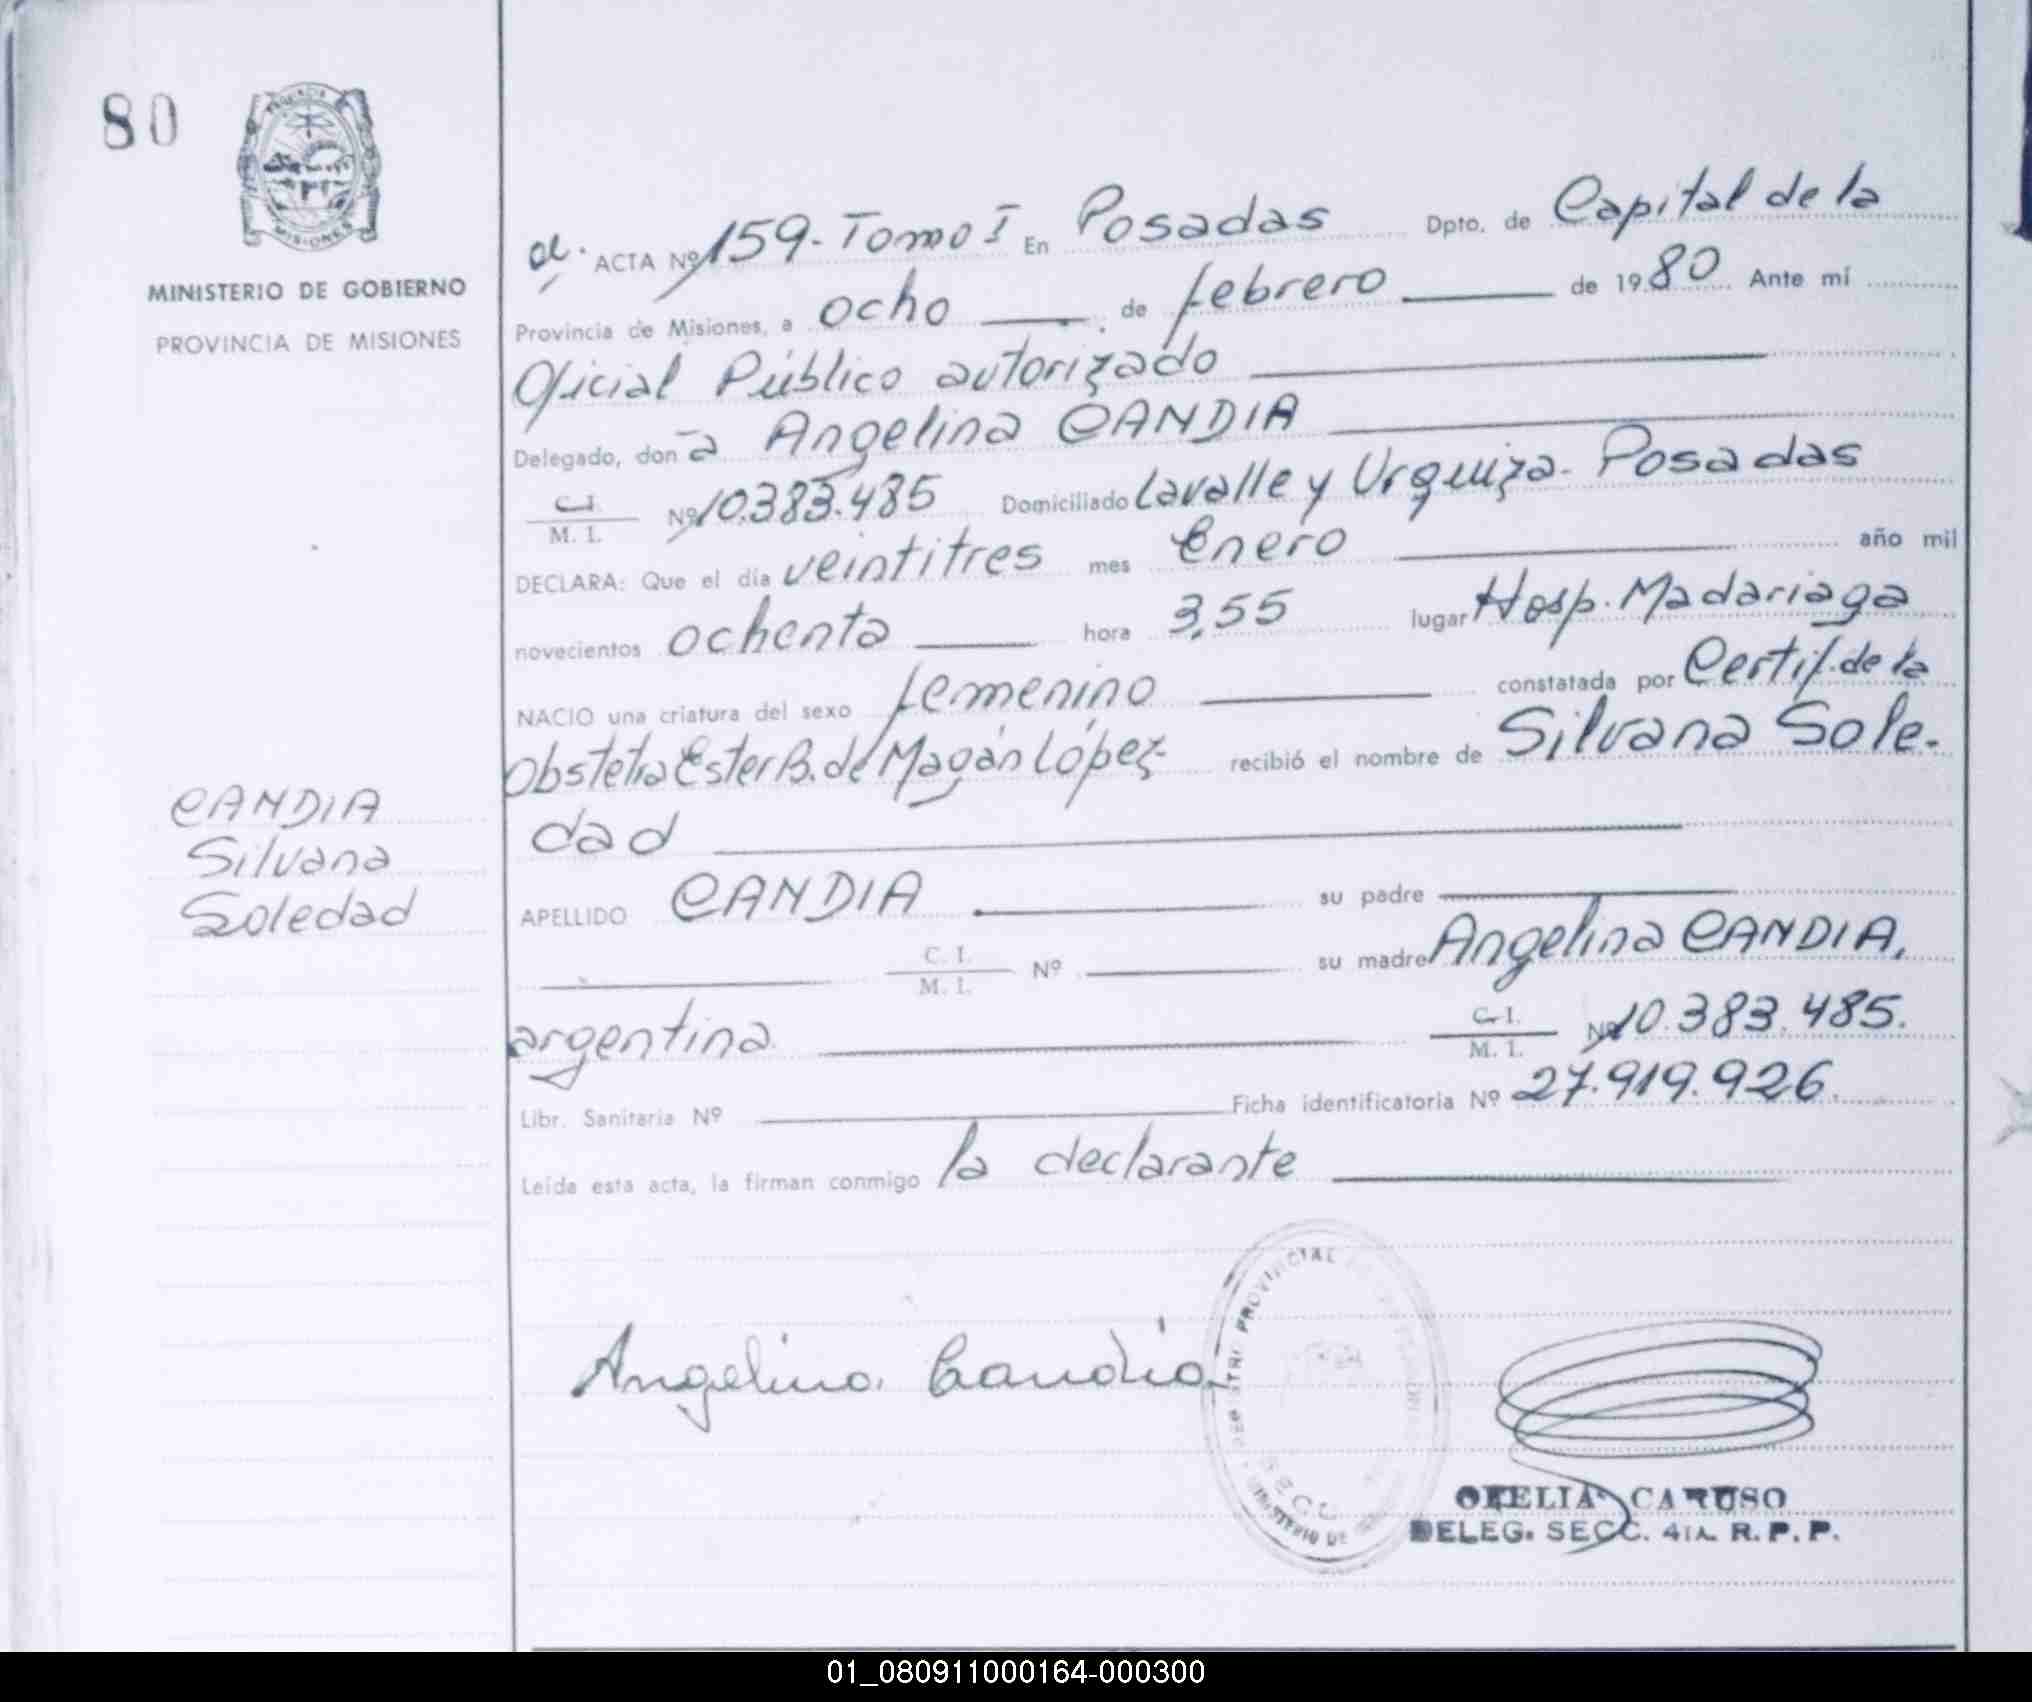 80
PROVINCIA
MISIONES
MINISTERIO DE GOBIERNO
PROVINCIA DE MISIONES
CANDIA
Silvana
Soledad
ACTA Nº 159.- Tomo I En Posadas Dpto. de Capital de la
Provincia de Misiones, a ocho de febrero de 1980 Ante mí
Oficial Público autorizado
Delegado, donã Angelina CANDIA
C. I. / M. I. Nº 10.383.485 Domiciliado Lavalle y Urquiza- Posadas
DECLARA: Que el día veintitres mes Enero año mil
novecientos ochenta hora 3,55 lugar Hosp. Madariaga
NACIO una criatura del sexo femenino constatada por Certif. de la
Obstetra Ester B. de Magán López- recibió el nombre de Silvana Sole-
dad
APELLIDO CANDIA su padre
C. I. / M. I. Nº su madre Angelina CANDIA,
argentina C. I. / M. I. Nº 10.383.485.
Libr. Sanitaria Nº Ficha identificatoria Nº 27.919.926.
Leída esta acta, la firman conmigo la declarante
Angelina Candia
PROVINCIAL
SECC
MINISTERIO DE
OFELIA CARUSO
DELEG. SECC. 4TA. R. P. P.
01_080911000164-000300